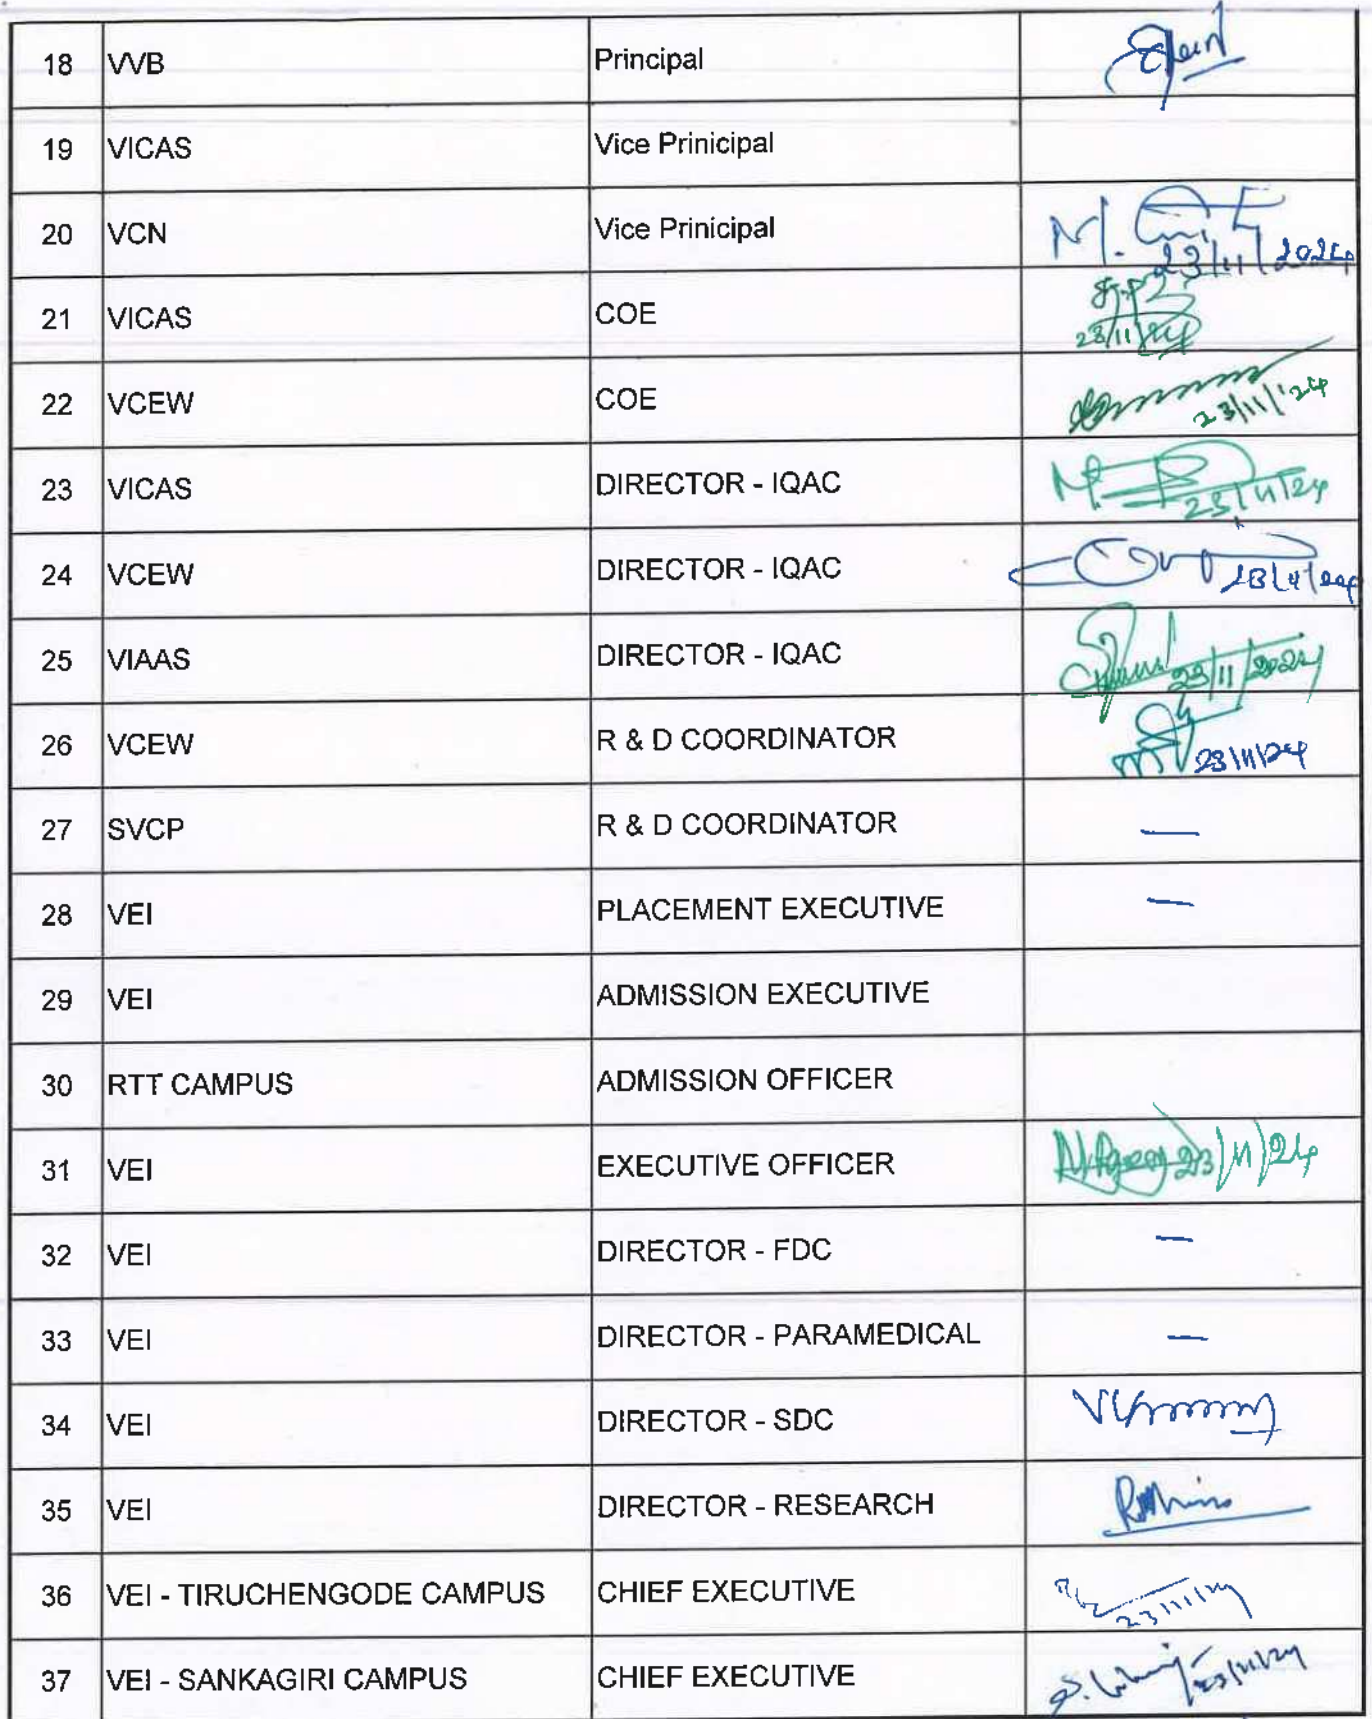 18 VVB Principal
19 VICAS Vice Prinicipal
20 VCN Vice Prinicipal M. 23/11/2024
21 VICAS COE 23/11/24
22 VCEW COE 23/11/'24
23 VICAS DIRECTOR - IQAC 23/11/24
24 VCEW DIRECTOR - IQAC
25 VIAAS DIRECTOR - IQAC 23/11/2024
26 VCEW R & D COORDINATOR 23/11/24
27 SVCP R & D COORDINATOR —
28 VEI PLACEMENT EXECUTIVE —
29 VEI ADMISSION EXECUTIVE
30 RTT CAMPUS ADMISSION OFFICER
31 VEI EXECUTIVE OFFICER 23/11/24
32 VEI DIRECTOR - FDC —
33 VEI DIRECTOR - PARAMEDICAL —
34 VEI DIRECTOR - SDC
35 VEI DIRECTOR - RESEARCH
36 VEI - TIRUCHENGODE CAMPUS CHIEF EXECUTIVE 23/11/24
37 VEI - SANKAGIRI CAMPUS CHIEF EXECUTIVE 23/11/24